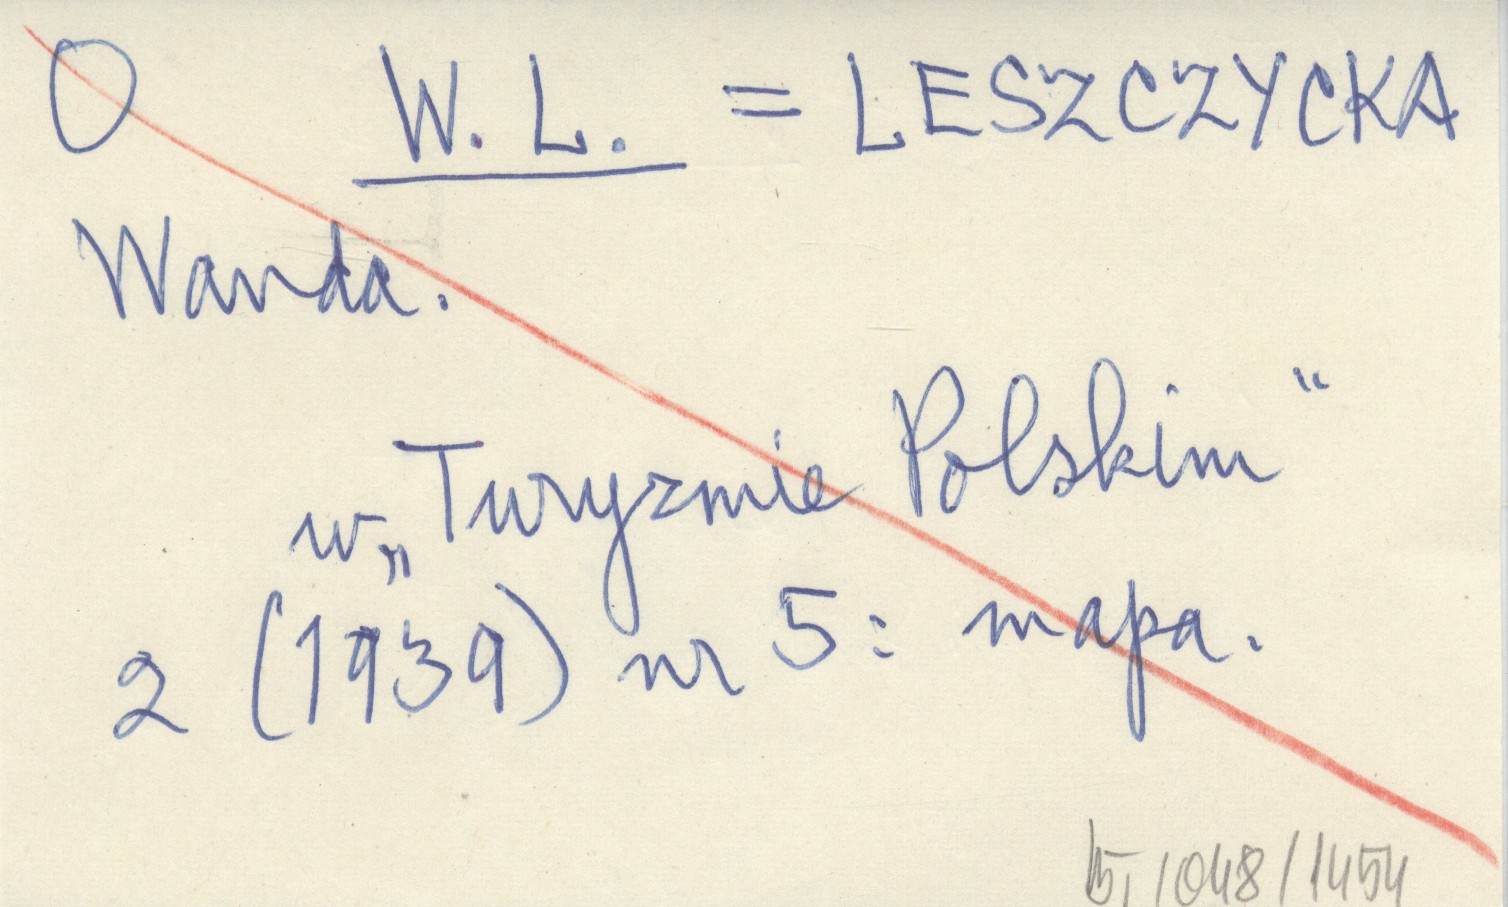 O W. L. = LESZCZYCKA
Wanda.
w „Turyzmie Polskim“
2 (1939) nr 5: mapa.
15, 1048/1454